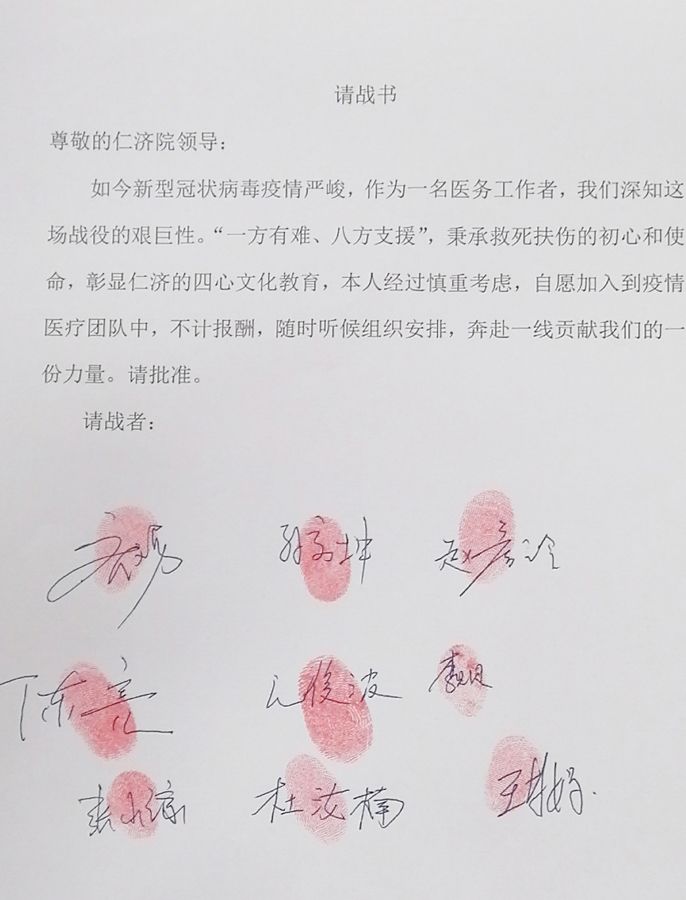 请战书
尊敬的仁济院领导：
如今新型冠状病毒疫情严峻，作为一名医务工作者，我们深知这
场战役的艰巨性。“一方有难、八方支援”，秉承救死扶伤的初心和使
命，彰显仁济的四心文化教育，本人经过慎重考虑，自愿加入到疫情
医疗团队中，不计报酬，随时听候组织安排，奔赴一线贡献我们的一
份力量。请批准。
请战者：
陈亮
杜汝楠